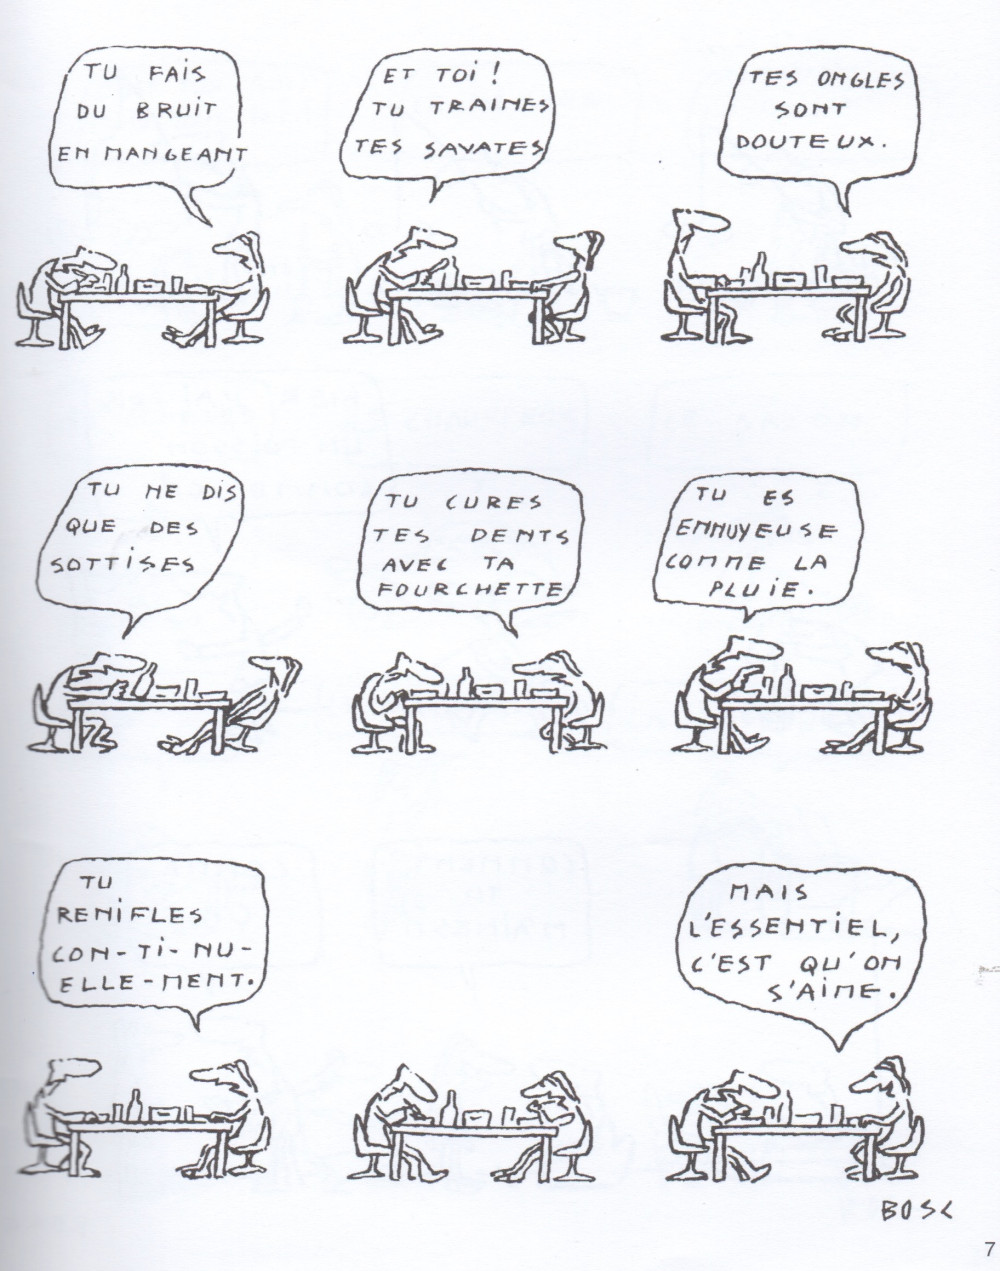 TU FAIS
DU BRUIT
EN MANGEANT
ET TOI !
TU TRAINES
TES SAVATES
TES ONGLES
SONT
DOUTEUX.
TU NE DIS
QUE DES
SOTTISES
TU CURES
TES DENTS
AVEC TA
FOURCHETTE
TU ES
ENNUYEUSE
COMME LA
PLUIE.
TU
RENIFLES
CON-TI-NU-
ELLE-MENT.
MAIS
L'ESSENTIEL,
C'EST QU'ON
S'AIME.
BOSC
7